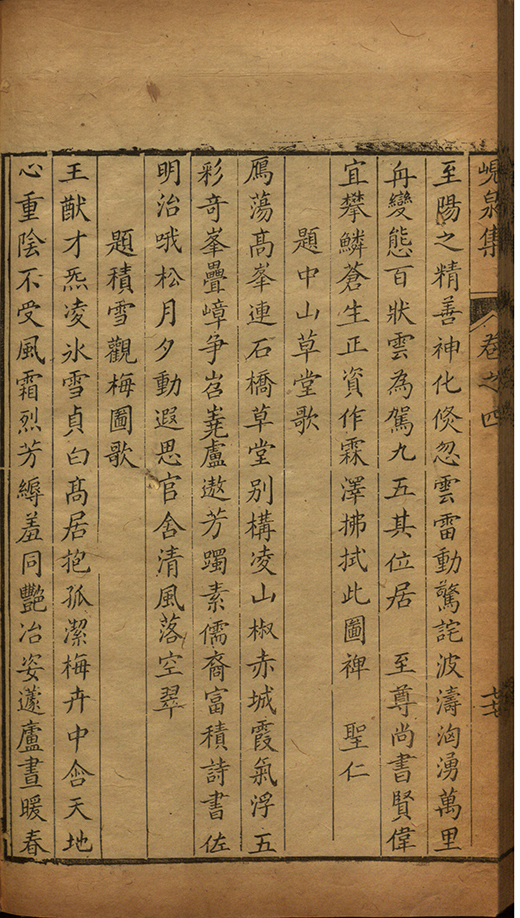 峴泉集 卷之四
至陽之精善神化倏忽雲雷動驚詫波濤洶湧萬里
舟變態百狀雲為駕九五其位居 至尊尚書賢偉
宜攀鱗蒼生正資作霖澤拂拭此圖裨 聖仁
題中山草堂歌
鴈蕩高峯連石橋草堂別構凌山椒赤城霞氣浮五
彩奇峯疊嶂争岧嶤盧遨芳躅素儒裔富積詩書佐
明治哦松月夕動遐思官舍清風落空翠
題積雪觀梅圖歌
王猷才炁凌氷雪貞白高居抱孤潔梅卉中含天地
心重陰不受風霜烈芳縟羞同艷冶姿蘧廬晝暖春